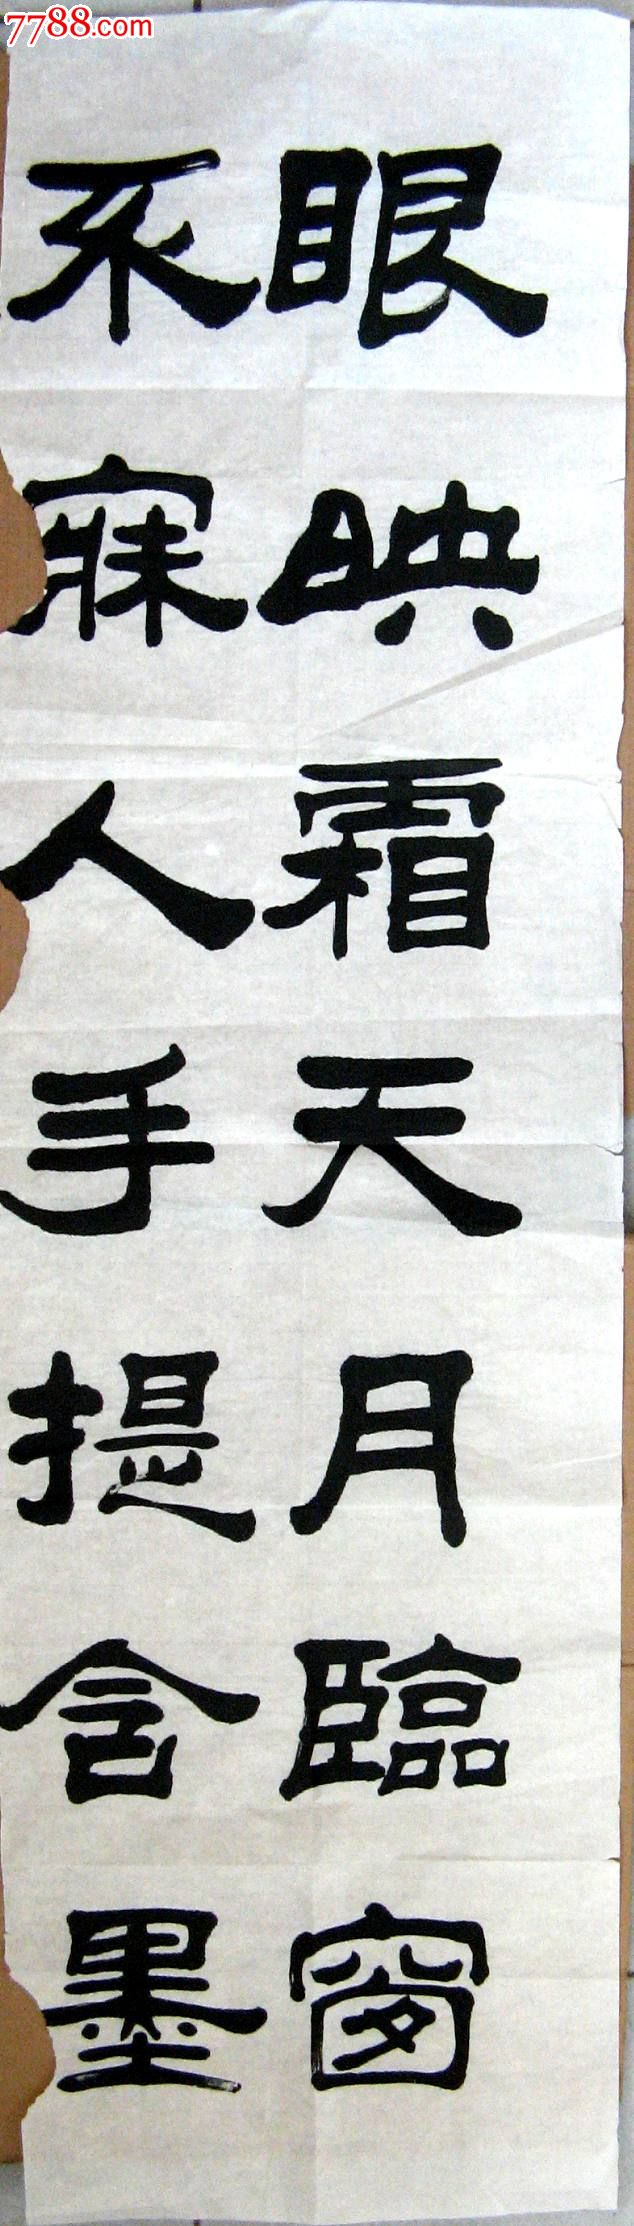 7788.com
眼映霜天月臨窗
不寐人手提含墨